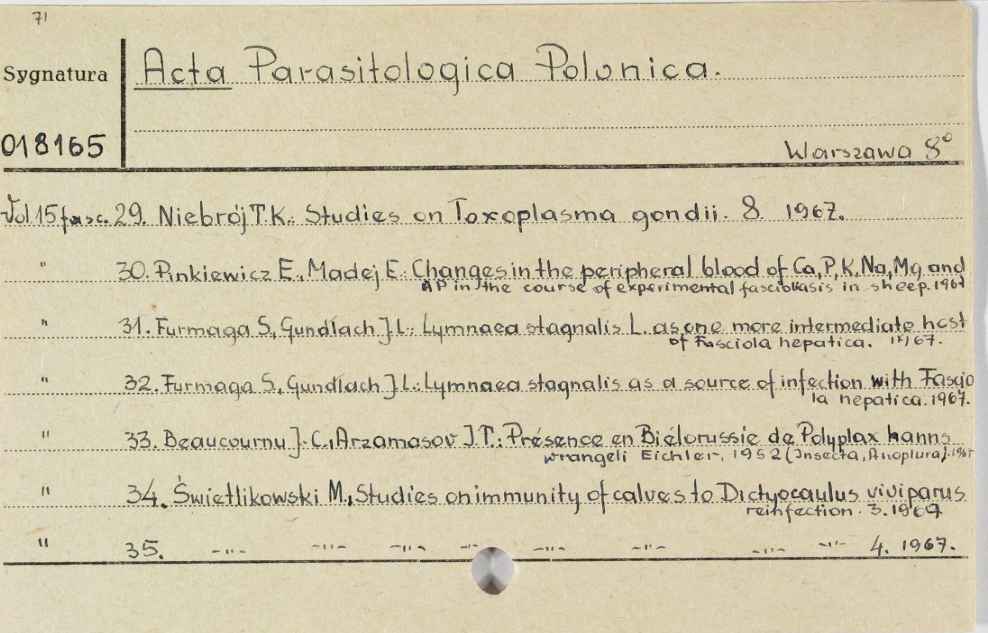 71
Sygnatura
Acta Parasitologica Polonica.
018165
Warszawa 8°
Vol 15 fasc. 29. Niebrój T.K.: Studies on Toxoplasma gondii. 8. 1967.
" 30. Pinkiewicz E., Madej E.: Changes in the peripheral blood of Ca, P, K, Na, Mg and
AP in the course of experimental fascioliasis in sheep. 1967
" 31. Furmaga S., Gundłach J.L.: Lymnaea stagnalis L. as one more intermediate host
of Fasciola hepatica. 1967.
" 32. Furmaga S., Gundłach J.L.: Lymnaea stagnalis as a source of infection with Fascio
la hepatica. 1967.
" 33. Beaucournu J.-C., Arzamasov J.T.: Présence en Biélorussie de Polyplax hanns
wrangeli Eichler, 1952 (Insecta, Anoplura). 1967
" 34. Świetlikowski M., Studies on immunity of calves to Dictyocaulus viviparus
reinfection. 3. 1967
" 35. -"- -"- -"- -"- -"- -"- -"- -"- 4. 1967.